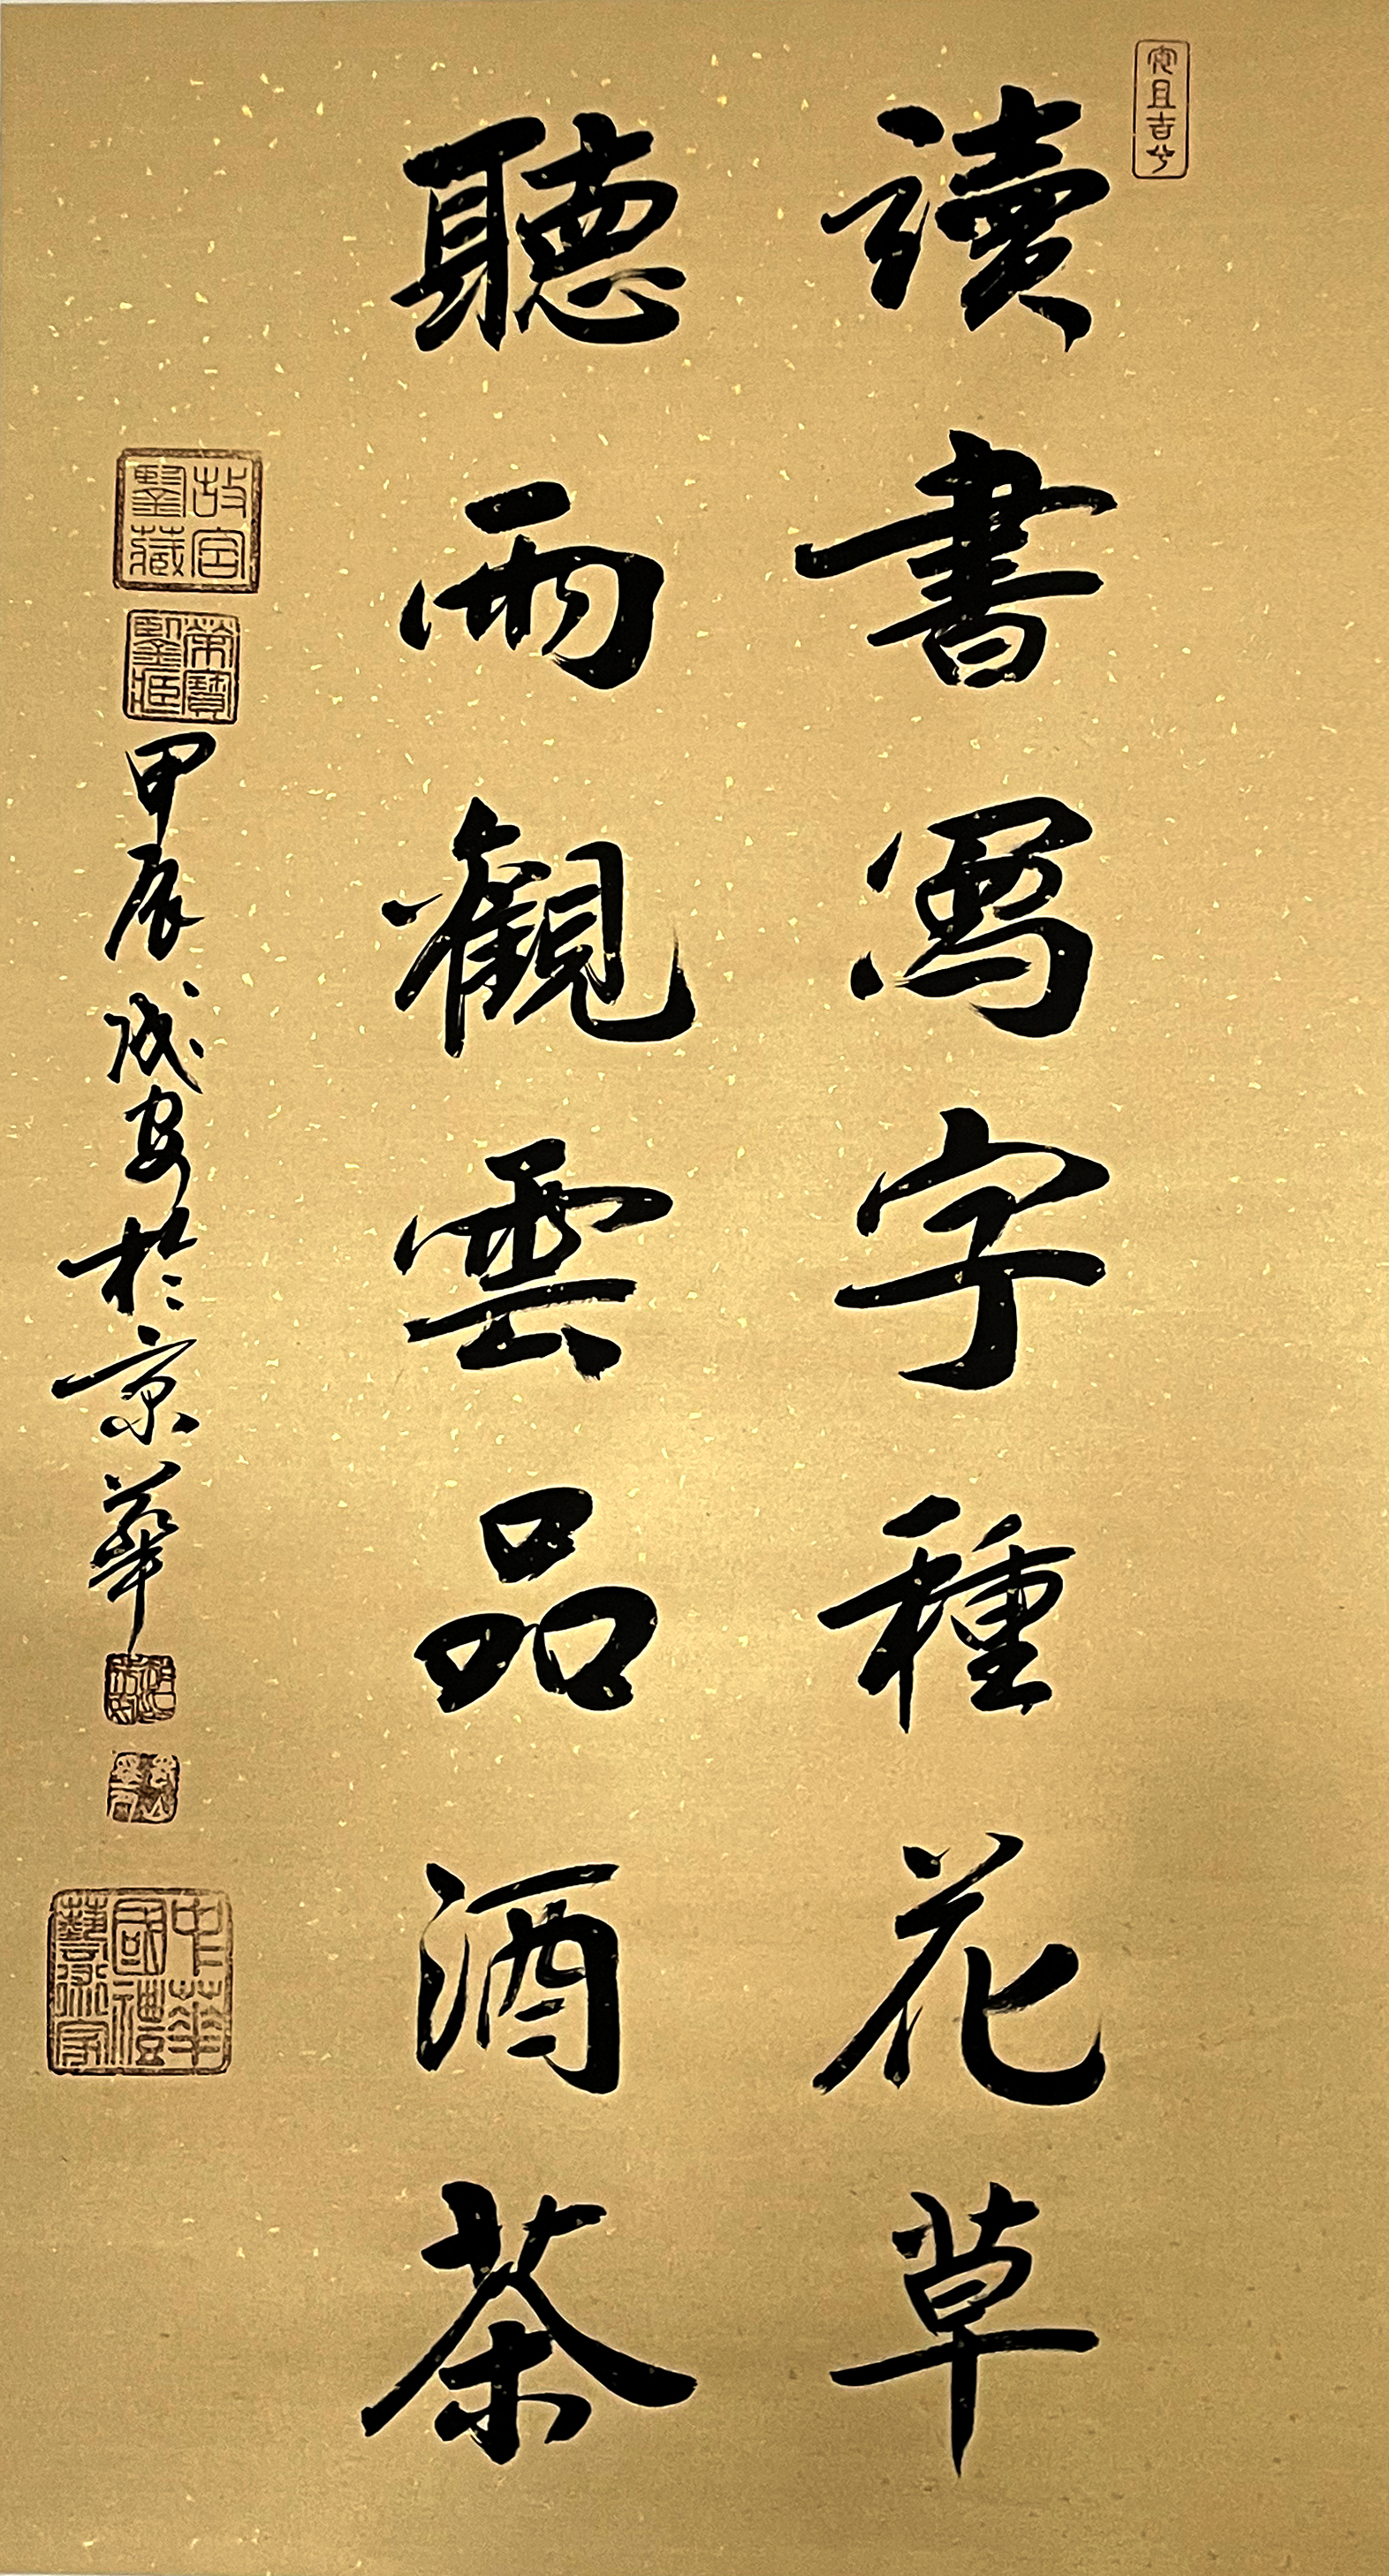 安且吉兮
讀書寫字種花草
聽雨觀雲品酒茶
故宮鑒藏
榮寶鑒藏
甲辰成安於京華
中華國禮藝術家